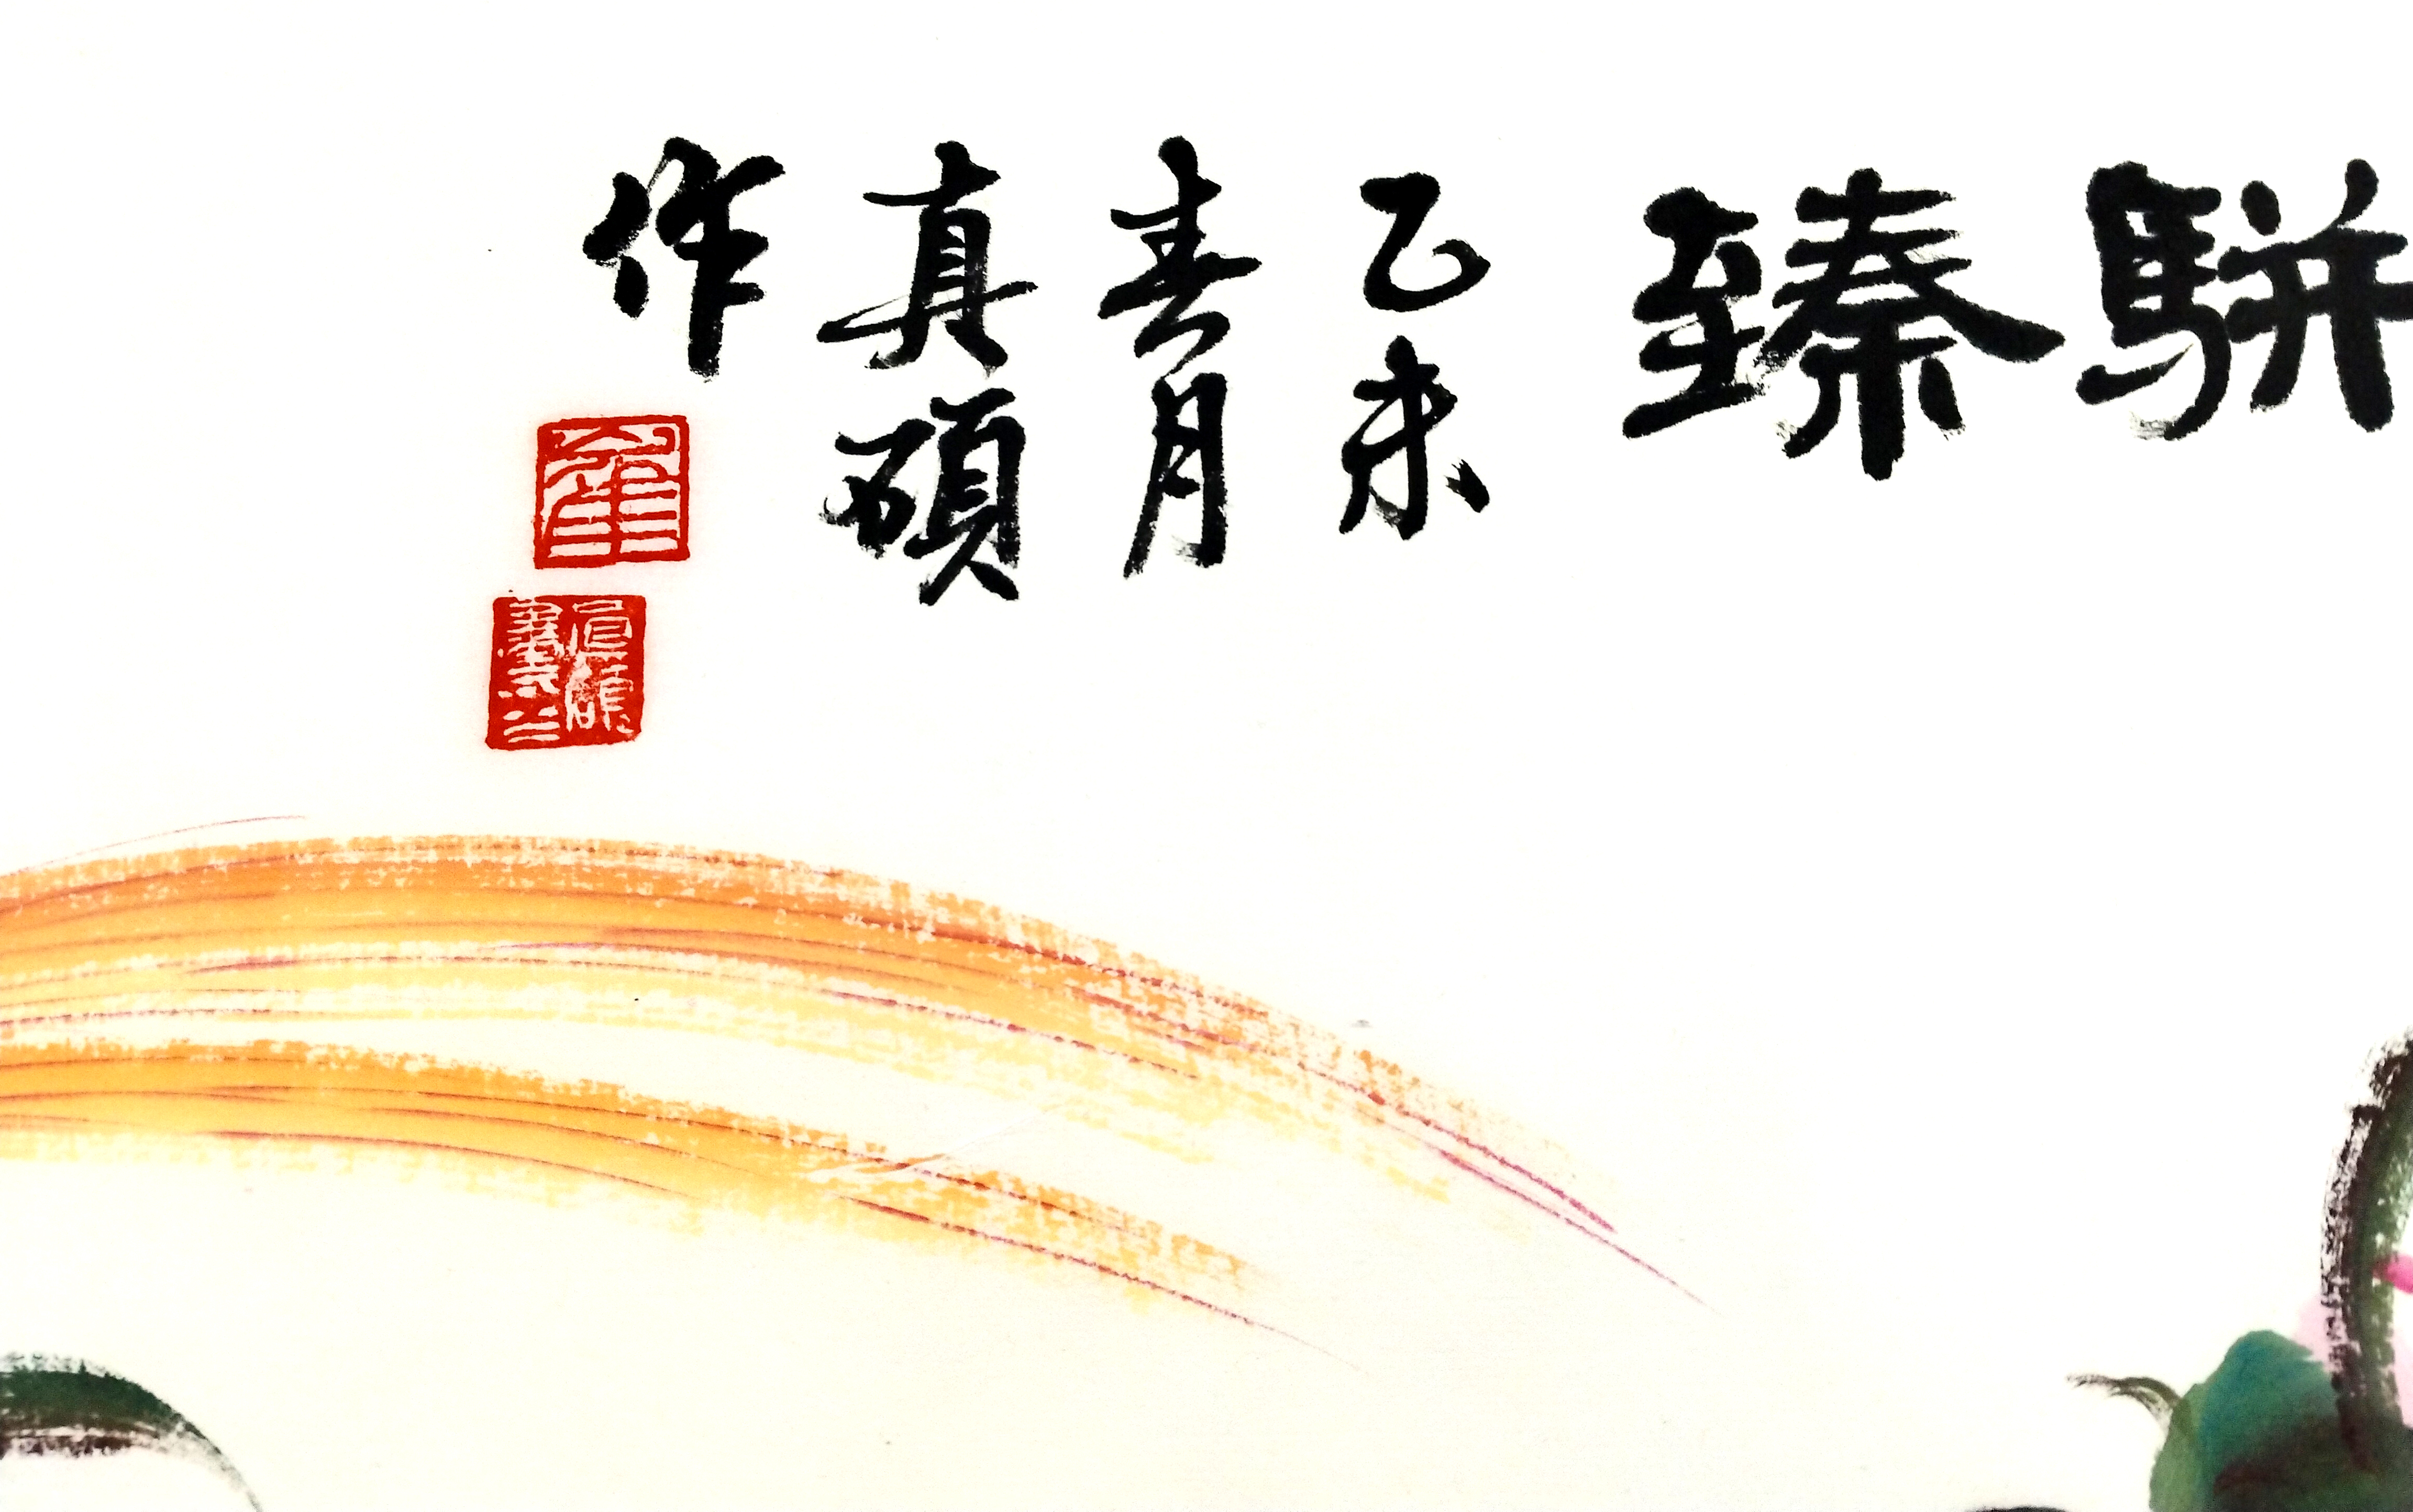 駢臻
乙未
春月
真碩
作